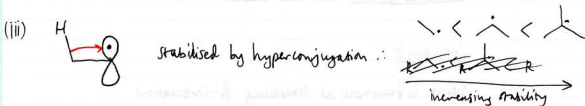 (iii) H stabilised by hyperconjugation ∴ < <
increasing stability